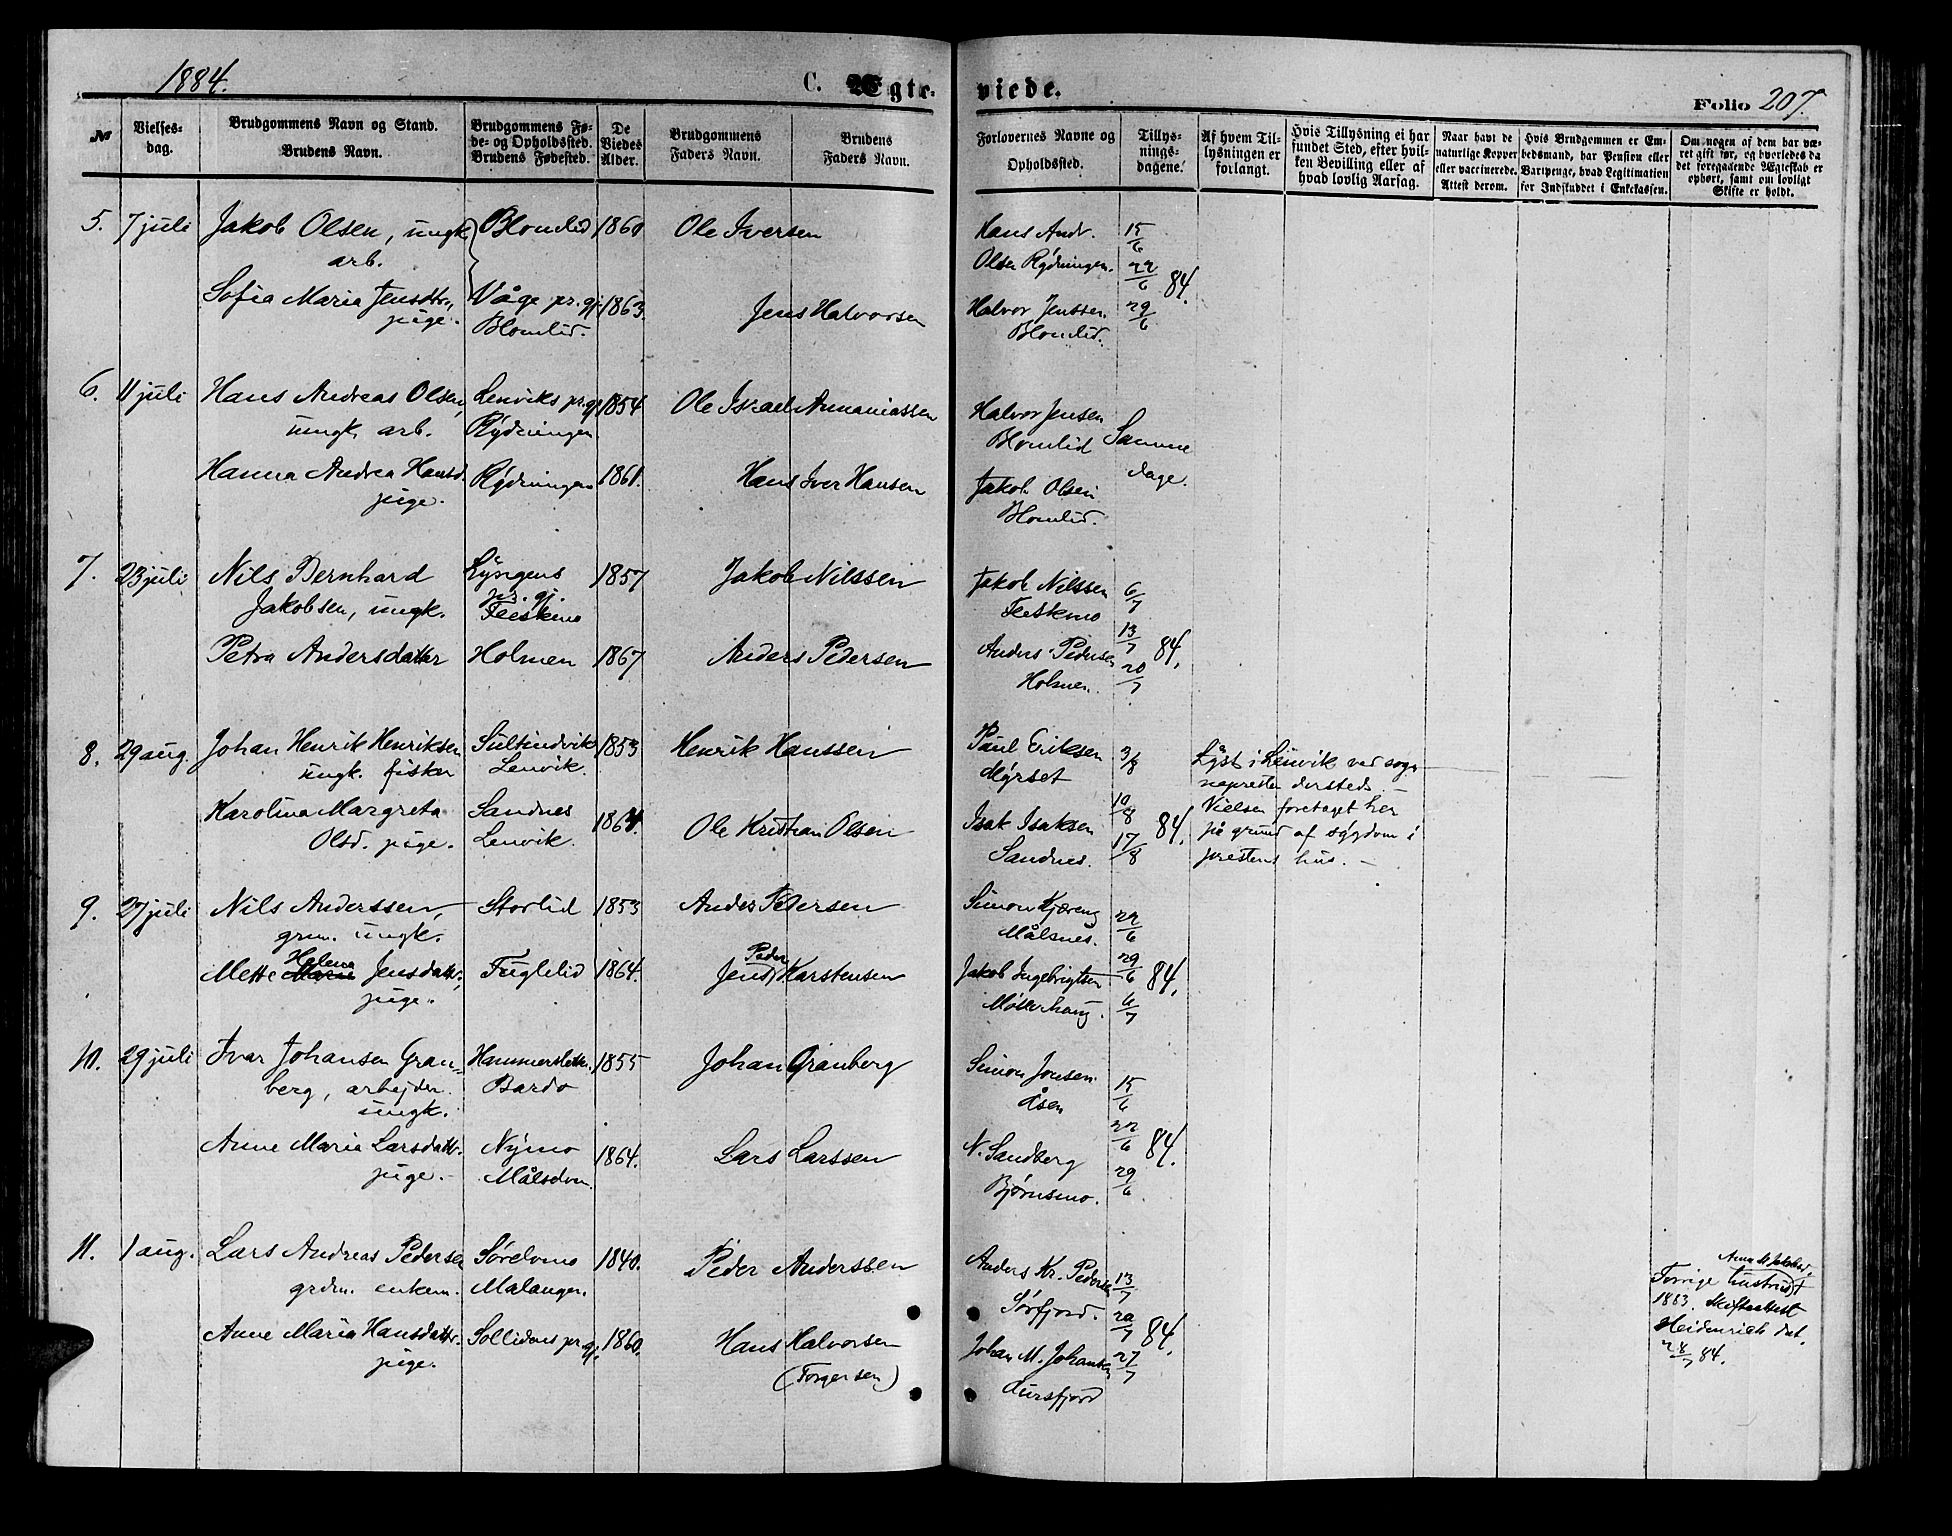 1884.
C. Ægte-
viede.
Folio 207.
№
Vielses-
dag.
Brudgommens Navn og Stand.
Brudens Navn.
Brudgommens Fø-
de- og Opholdssted.
Brudens Fødested.
De
Viedes
Alder.
Brudgommens
Faders Navn.
Brudens
Faders Navn.
Forlovernes Navne og
Opholdssted.
Tillys-
nings-
dagene.
Af hvem Til-
lysningen er
forlangt.
Hvis Tillysning ei har
fundet Sted, efter hvil-
ken Bevilling eller af
hvad lovlig Aarsag.
Naar havt de
naturlige Kopper
eller vaccinerede.
Attest derom.
Hvis Brudgommen er Em-
bedsmand, har Pension eller
Vartpenge, hvad Legitimation
for Indskuddet i Enkekassen.
Om nogen af dem har væ-
ret gift før, og hvorledes da
det foregaaende Ægteskab er
ophørt, samt om lovligt
Skifte er holdt.
5. 7 juli Jakob Olsen, ungk. Blomlid 1860 Ole Iversen
arb.
Sofia Maria Jensdtr., Våge pr.gj. 1863. Jens Halvorsen
pige. Blomlid.
Hans Andr. 15/6
Olsen Rydningen. 22/6 84.
Halvor Jenssen 29/6
Blomlid.
6. 11 juli Hans Andreas Olsen, Lenviks pr.gj. 1854 Ole Iskael Annaniassen
ungk. arb. Rydningen
Hanna Andrea Hansd. Rydningen 1861. Hans Iver Hansen
pige.
Halvor Jensen
Blomlid Samme
dage.
Jakob Olsen
Blomlid.
7. 23 juli Nils Bernhard Lyngens 1857 Jakob Nilssen
Jakobsen, ungk. pr. gj.
Fleskmo
Petra Andersdatter Holmen 1867 Anders Pedersen
Jakob Nilssen 6/7
Fleskmo
13/7
Anders Pedersen 84.
Holmen. 20/7
8. 29 aug. Johan Henrik Henriksen Sultindvik 1853 Henrik Hanssen
ungk. fisker Lenvik.
Karolina Margreta Sandnes 1864. Ole Kristian Olsen
Olsd. pige. Lenvik.
Paul Eriksen 3/8
Myrset
10/8
Isak Isaksen 84.
Sandnes. 17/8
Lyst i Lenvik ved sog-
nepresten dersteds. —
Vielsen foretaget her
på grund af sygdom i
prestens hus. —
9. 27 juli Nils Anderssen, Storlid 1853 Anders Pedersen
grm. ungk.
Helena
Mette Marie Jensdatter, Fuglelid 1864. Jens Peder Karstensen
pige.
Simon Kjæreng 22/6
Målsnes.
Jakob Ingebrigtsen 29/6 84.
Møllerhaug. 6/7
10. 29 juli Ivar Johansen Gran- Hammerslett. 1855 Johan Granberg
berg, arbejder. Bardo
ungk.
Anne Maria Larsdatter. Nymo 1864. Lars Larssen
pige. Målsdven.
Simon Jonsen 15/6
Åsen
22/6
N. Sandberg 84.
Bjørnsmo. 29/6
11. 1 aug. Lars Andreas Pedersen Sørelvmo 1840. Peder Anderssen
grdm. enkem. Malangen.
Anne Maria Hansdattr. Sollidens pr.gj. 1860. Hans Halvorsen
pige. (Torgersen)
Anders Kr. Pedersen 13/7
Sørfjord. 20/7 84.
Johan M. Johansen 27/7
Aursfjord
Forrige hustru †
1883. Skifteattest
Heidenrich dat.
28/7 84.